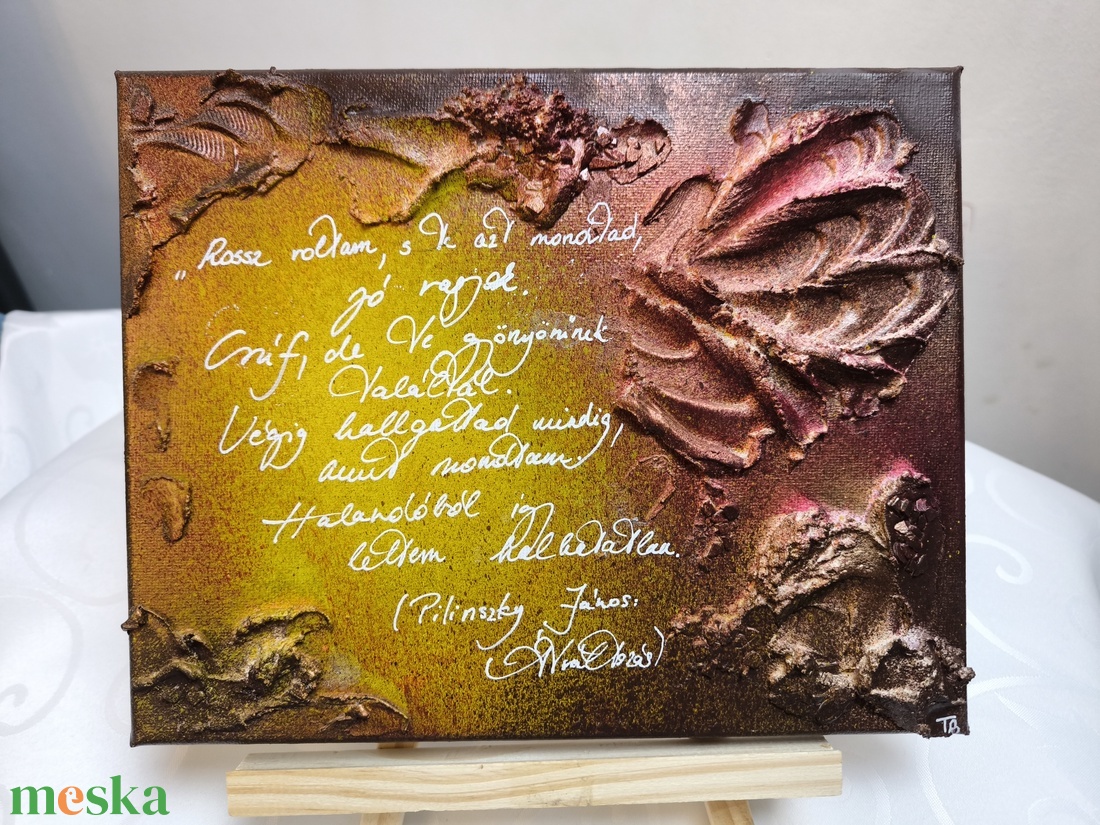 „Rossz voltam, s te azt mondtad,
jó vagyok.
Csúf, de te gyönyörűnek
találtál.
Végig hallgattad mindig,
amit mondtam.
Halandóból így
lettem halhatatlan.
(Pilinszky János:
Átváltozás)
TB
meska